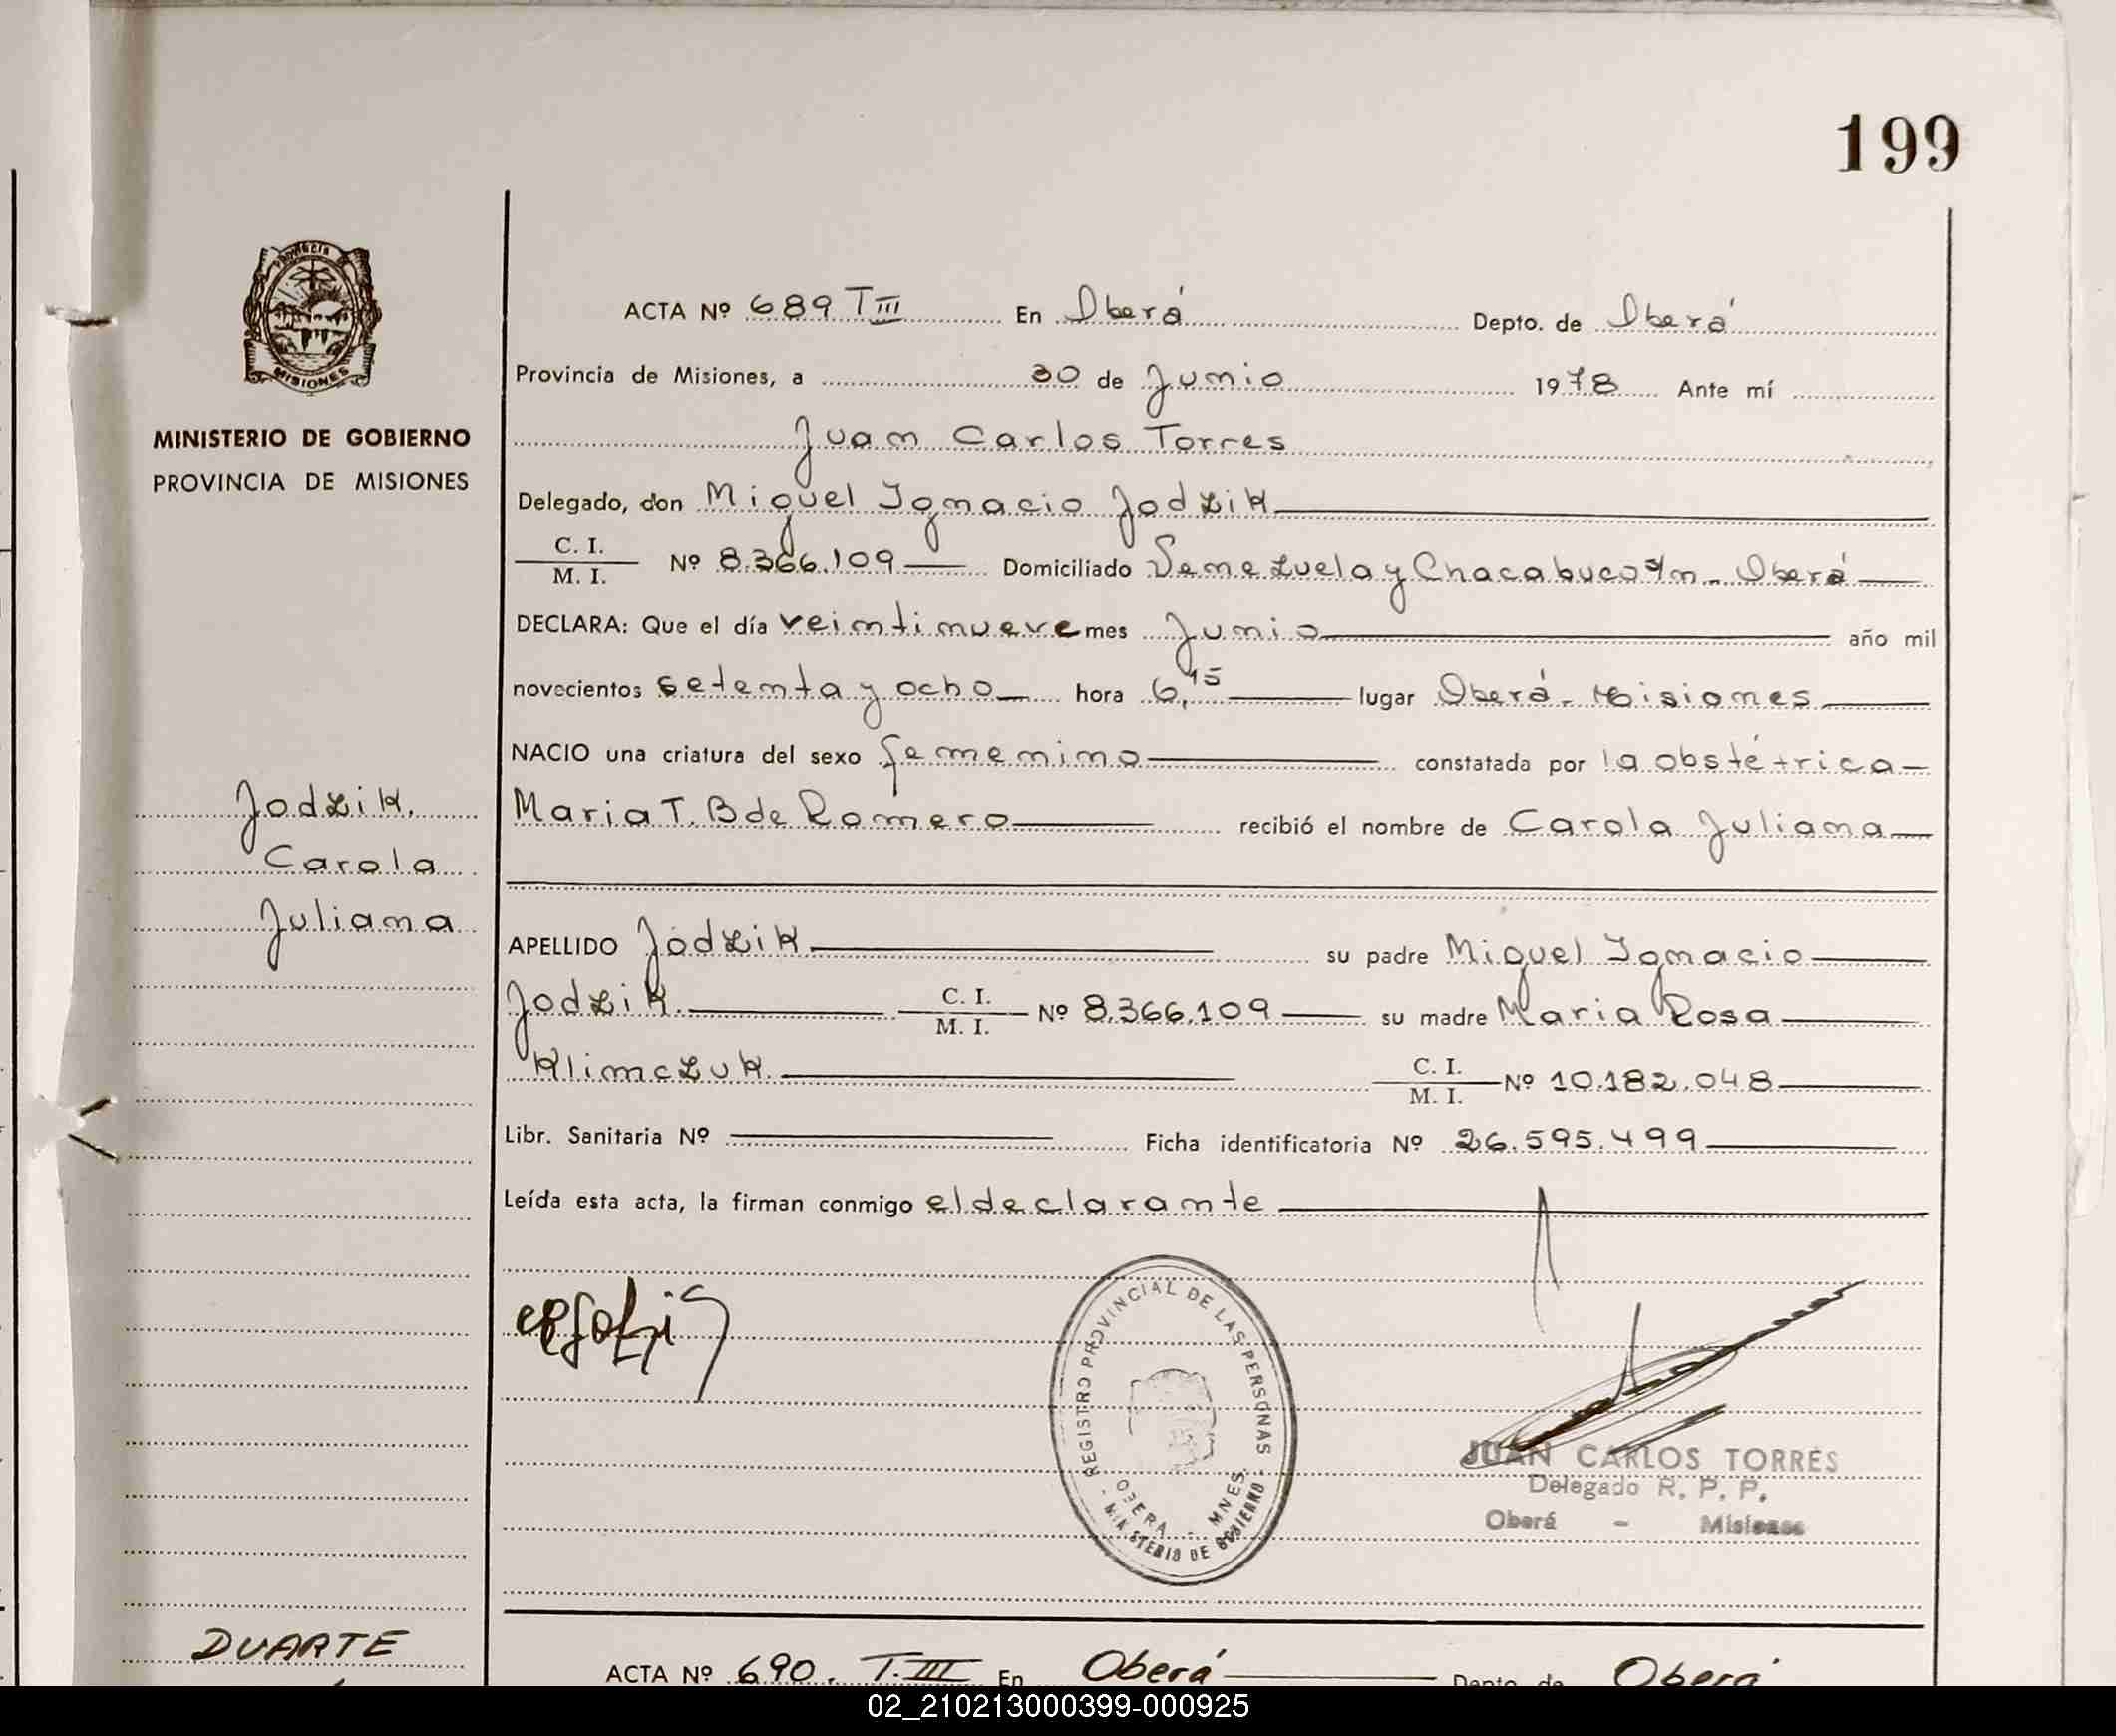 199
Provincia
MISIONES
MINISTERIO DE GOBIERNO
PROVINCIA DE MISIONES
Jodzik.
Carola
Juliana
ACTA Nº 689 T III En Oberá Depto. de Oberá
Provincia de Misiones, a 30 de Junio 1978 Ante mí
Juan Carlos Torres
Delegado, don Miguel Ignacio Jodzik
C. I.
M. I. Nº 8.366.109 Domiciliado Venezuela y Chacabuco s/n - Oberá
DECLARA: Que el día veintinueve mes Junio año mil
novecientos setenta y ocho hora 6,15 lugar Oberá - Misiones
NACIO una criatura del sexo femenino constatada por la obstétrica
Maria T. B de Romero recibió el nombre de Carola Juliana
APELLIDO Jodzik su padre Miguel Ignacio
Jodzik. C. I.
M. I. Nº 8.366.109 su madre Maria Rosa
Klimczuk. C. I.
M. I. Nº 10.182.048
Libr. Sanitaria Nº Ficha identificatoria Nº 26.595.499
Leída esta acta, la firman conmigo el declarante
REGISTRO PROVINCIAL DE LAS PERSONAS
OBERA - MNES.
MINISTERIO DE GOBIERNO
JUAN CARLOS TORRES
Delegado R. P. P.
Oberá - Misiones
DUARTE
ACTA Nº 690. T. III En Oberá Depto de Oberá
02_210213000399-000925